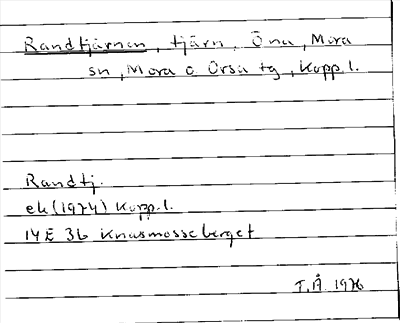 Randtjärnen, tjärn, Öna, Mora
sn, Mora o Orsa tg, Kopp.l.
Randtj.
ek (1974) Kopp.l.
14E 3b Knusmosseberget
T.Å. 1976